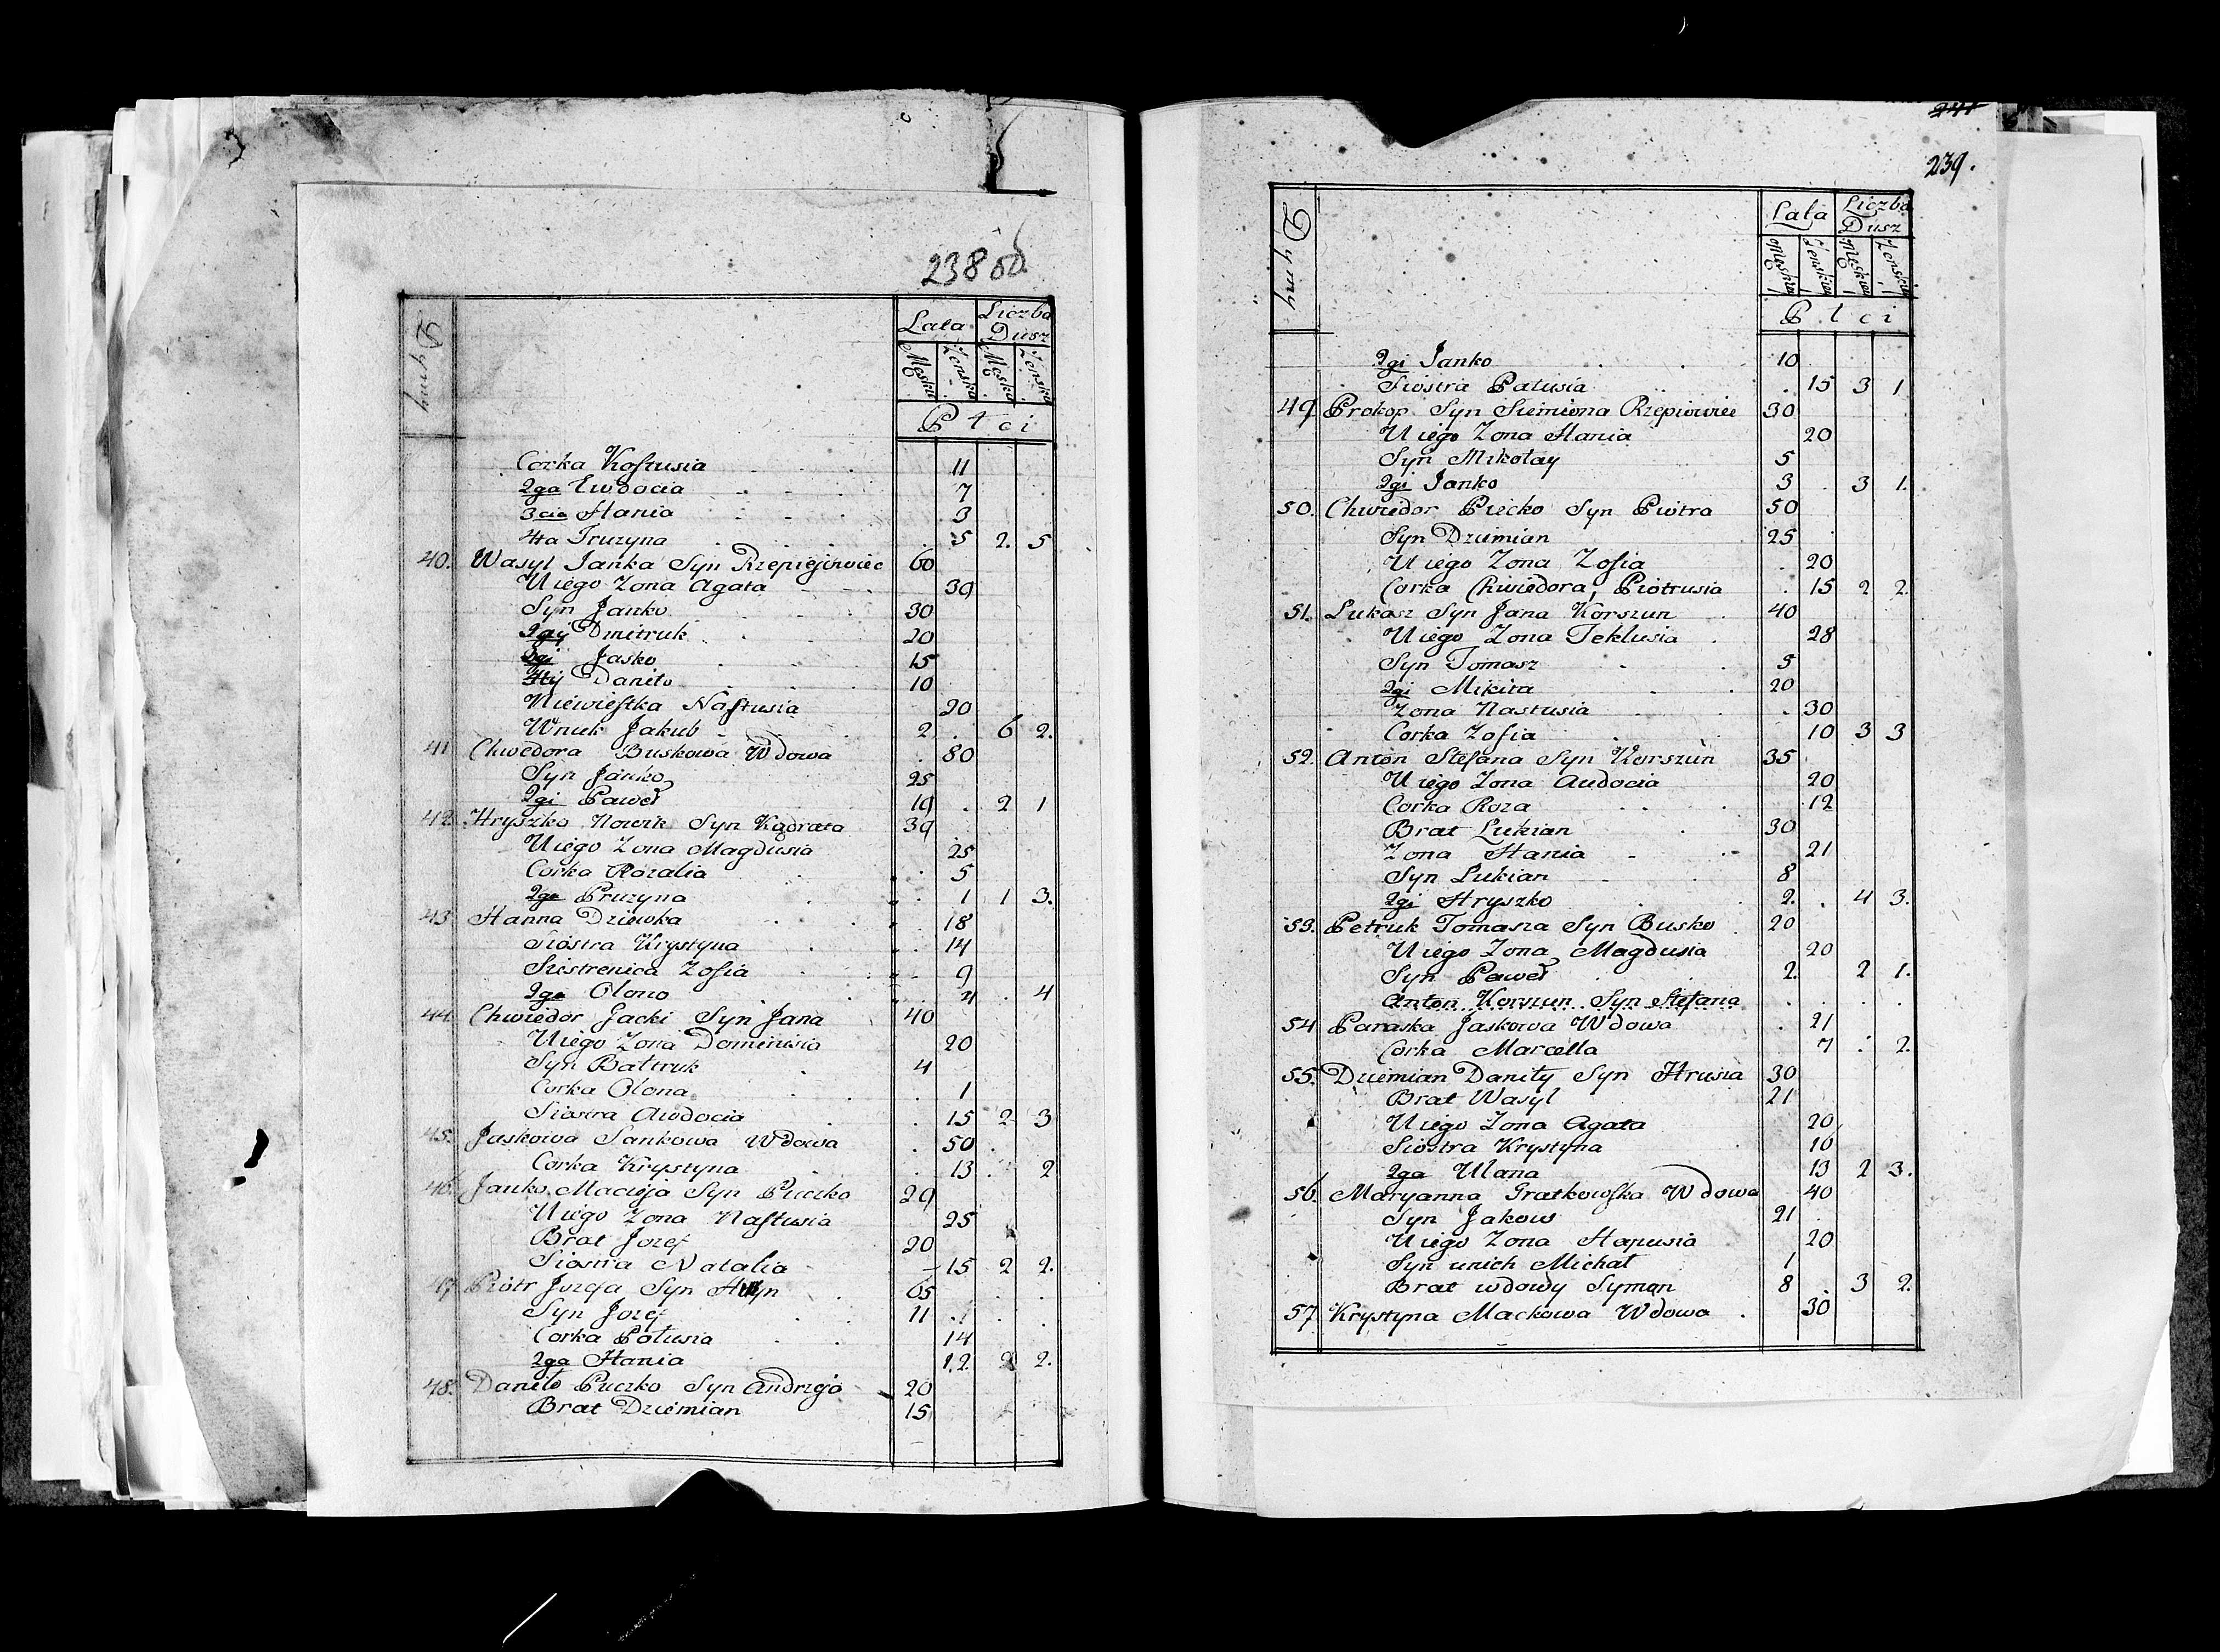 238 od
Dymy Lata Liczba Dusz
Męska Zenska Męska Zenska
Płci
Corka Kostusia 11
2ga Ewdocia 7
3cia Hania 3
4ta Pruzyna 5 2. 5
40. Wasyl Janka Syn Rzepiejowiec 60
Uiego Zona Agata 39
Syn Janko 30
2gi Dmitruk 20
3ci Jasko 15
4ty Daniło 10
Niewiestka Nastusia 20
Wnuk Jakub 2 6 2.
41 Chwedora Buskowa Wdowa 80
Syn Janko 25
2gi Paweł 19 2 1
42 Hryszko Nowik Syn Kądrata 39
Uiego Zona Magdusia 25
Corka Rozalia 5
2ga Pruzyna 1 1 3.
43 Hanna Dziewka 18
Siostra Krystyna 14
Siestrenica Zofia 9
2ga Olono 4
44. Chwiedor Jacki Syn Jana 40
Uiego Zona Dominisia 20
Syn Bałtruk 4
Corka Olona 1
Siostra Awdocia 15 2 3
45. Jaskowa Sankowa Wdowa 50
Corka Krystyna 13 2
46. Janko Macieja Syn Puczko 29
Uiego Zona Nastusia 25
Brat Jozef 20
Siostra Natalia 15 2 2.
47 Piotr Jozefa Syn 65
Syn Jozef 11
Corka Połusia 14
2ga Hania 12. 2 2.
48. Daniło Puczko Syn Andrzeja 20
Brat Dziemian 15
239.
Dymy Lata Liczba Dusz
Męska Zenska Męska Zenska
Płci
2gi Janko 10
Siostra Patusia 15 3 1
49 Prokop Syn Siemiona Rzepiowiec 30
Uiego Zona Hania 20
Syn Mikołay 5
2gi Janko 3 3 1.
50. Chwiedor Piecko Syn Piotra 50
Syn Dziemian 25
Uiego Zona Zofia 20
Corka Chwiedora, Piotrusia 15 2 2.
51. Lukasz Syn Jana Korszun 40
Uiego Zona Teklusia 28
Syn Tomasz 5
2gi Mikita 20
Zona Nastusia 30
Corka Zofia 10 3 3
52. Anton Stefana Syn Korszun 35
Uiego Zona Audocia 20
Corka Roza 12
Brat Lukian 30
Zona Hania 21
Syn Lukian 8
2gi Hryszko 2. 4 3.
53. Petruk Tomasza Syn Busko 20
Uiego Zona Magdusia 20
Syn Paweł 2. 2 1.
Anton Korszun Syn Stefana
54 Paraska Jaskowa Wdowa 21
Corka Marcella 7 2.
55. Dziemian Daniły Syn Hrusia 30
Brat Wasyl 21
Uiego Zona Agata 20
Siostra Krystyna 10
2ga Ulana 13 2 3.
56. Maryanna Gratkowska Wdowa 40
Syn Jakow 21
Uiego Zona Hapusia 20
Syn unich Michał 1
Brat wdowy Symon 8 3 2.
57 Krystyna Mackowa Wdowa 30